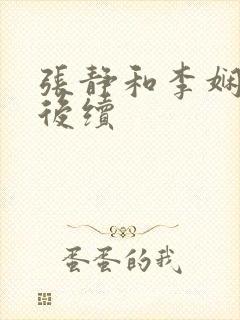 張靜和李娴
後續
蛋蛋的我